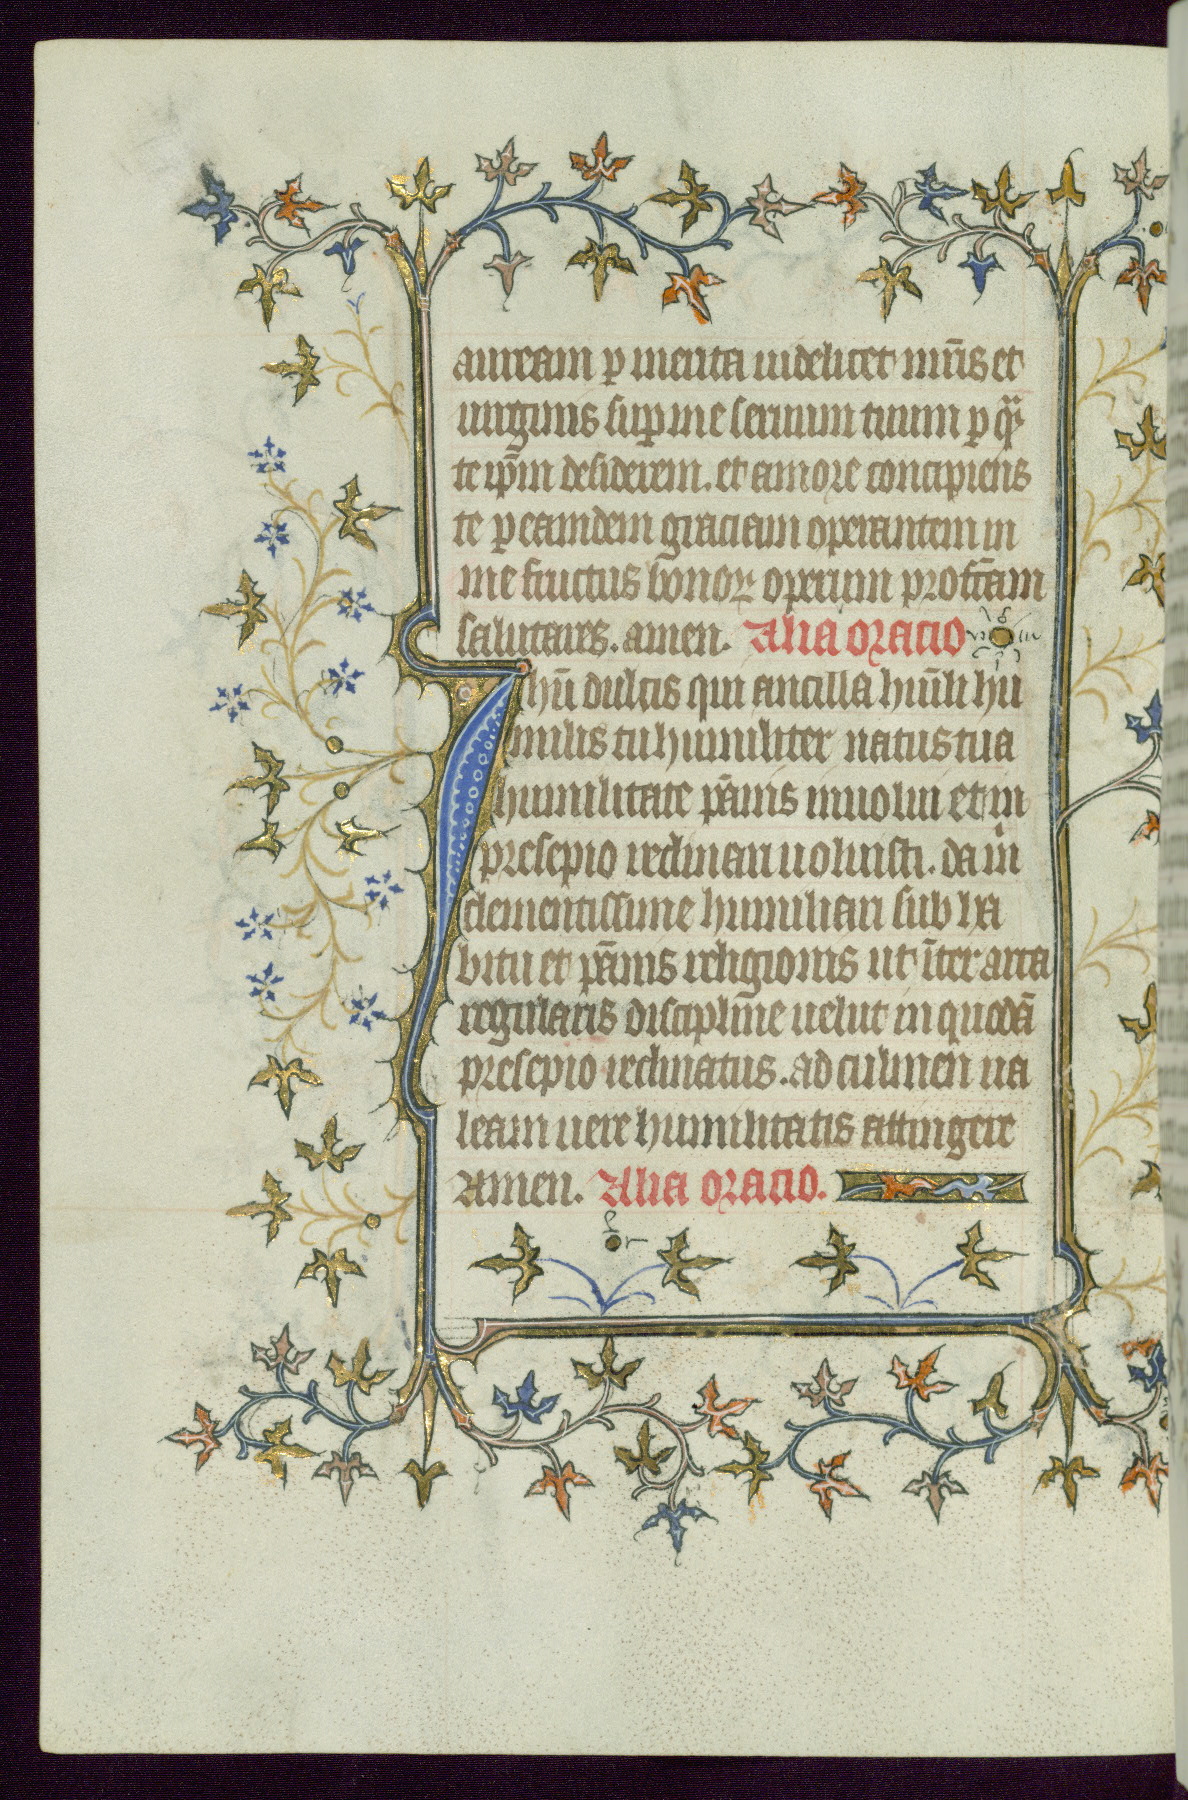 auream p merita uidelicet mr̄is et
uirginis sup me seruum tuum p q̄
te ip̄m desiderem. et amore concipiens
te p eamdem graciam operantem in
me fructus bonoꝝ operum profeꝛam
salutares. amen. Alia oracio
Ihū dulcis qui ancilla hūīli hu
milis tu humiliter natus tua
humilitate pānis inuolui et in
presepio reclinari uoluisti. da m̄
clementissime humiliari sub ha
bitu et pānis religionis ut īter arta
regularis discipline uelut in quodā
presepio reclinatus. ad culmen ua
leam uere humilitatis attingere
Amen. Alia oracio.